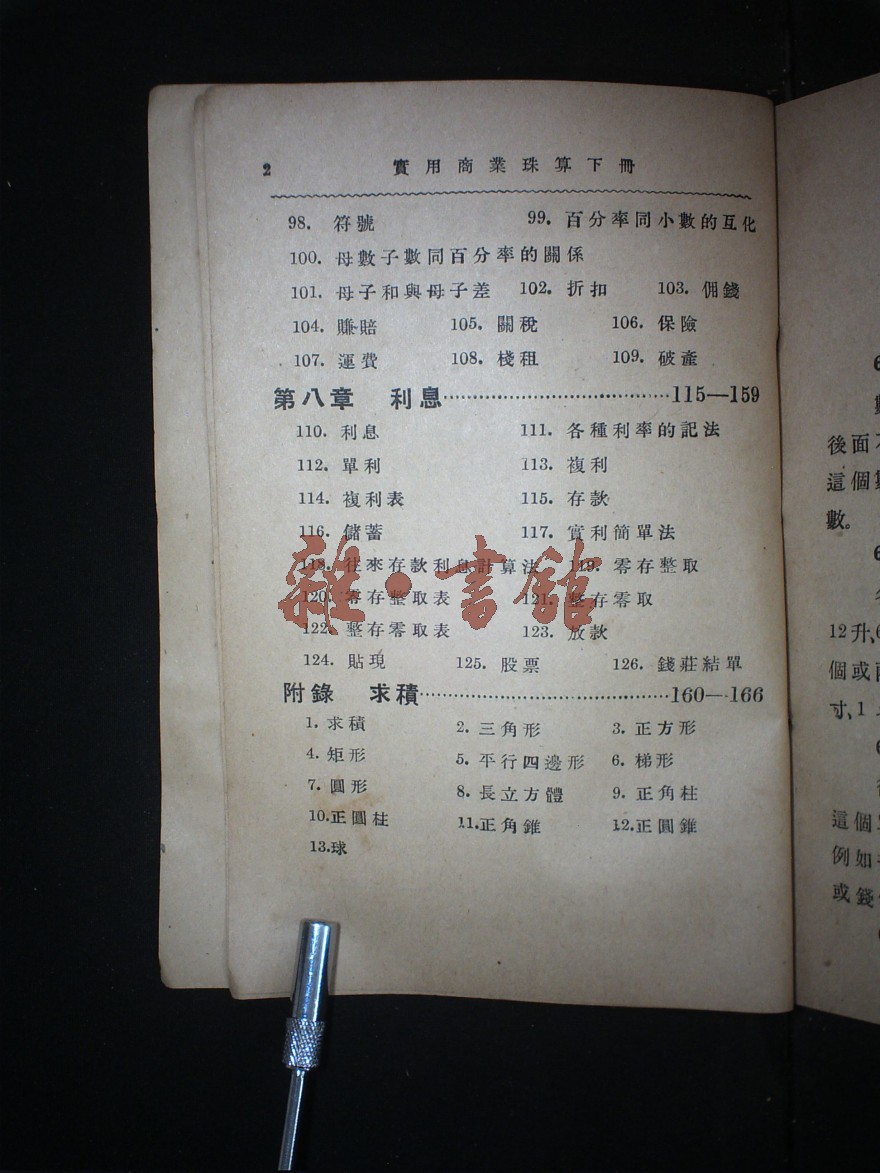 2 實用商業珠算下冊
98. 符號 99. 百分率同小數的互化
100. 母數子數同百分率的關係
101. 母子和與母子差 102. 折扣 103. 佣錢
104. 賺賠 105. 關稅 106. 保險
107. 運費 108. 棧租 109. 破產
第八章 利息……………………………115—159
110. 利息 111. 各種利率的記法
112. 單利 113. 複利
114. 複利表 115. 存款
116. 儲蓄 117. 實利簡單法
118. 往來存款利息計算法 119. 零存整取
120. 零存整取表 121. 整存零取
122. 整存零取表 123. 放款
124. 貼現 125. 股票 126. 錢莊結單
附錄 求積……………………………160—166
1. 求積 2. 三角形 3. 正方形
4. 矩形 5. 平行四邊形 6. 梯形
7. 圓形 8. 長立方體 9. 正角柱
10.正圓柱 11.正角錐 12.正圓錐
13.球
雜·書館
後面
這個
數。
12升、
個或
寸、1
這個
例如
或錢